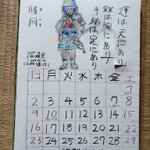 運は天にあり
鎧は胸にあり
手柄は足にあり
睦月
日 月 火 水 木 金 土
1
2 3 4 5 6 7 8
9 10 11 12 13 14 15
16 17 18 19 20 21 22
23 24 25 26 27 28 29